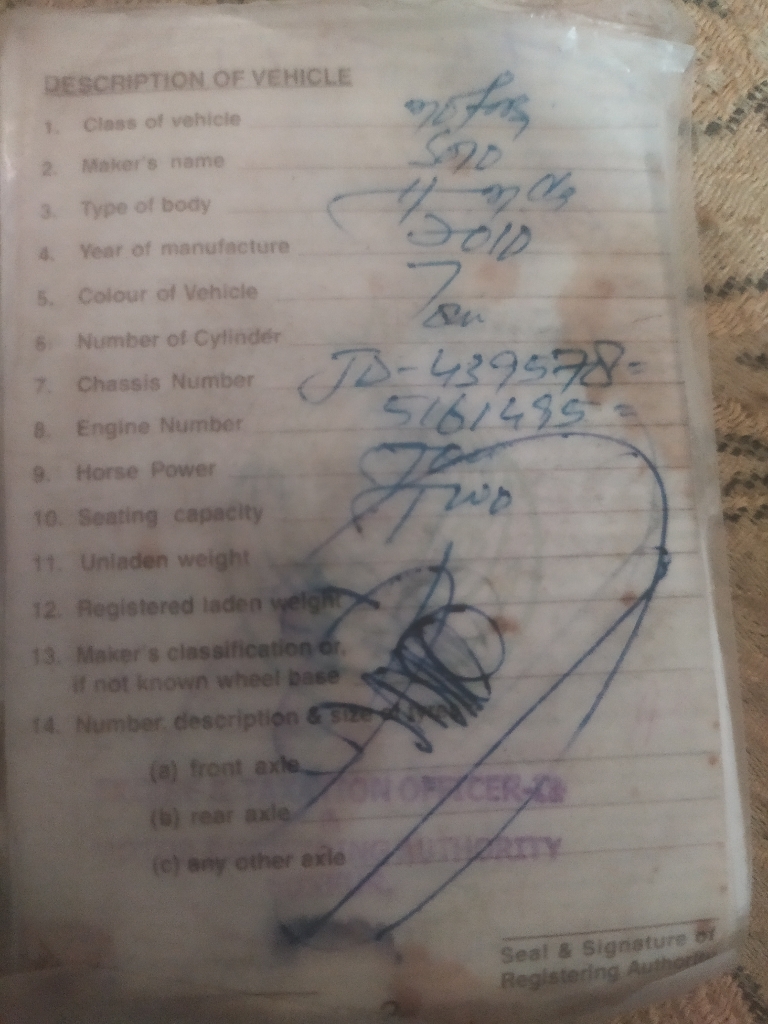 DESCRIPTION OF VEHICLE
1. Class of vehicle
2. Maker's name
3. Type of body
4. Year of manufacture 2010
5. Colour of Vehicle
6. Number of Cylinder
7. Chassis Number JD-439578=
8. Engine Number 5161495=
9. Horse Power
10. Seating capacity Two
11. Unladen weight
12. Registered laden weight
13. Maker's classification or,
if not known wheel base
14. Number, description & size of tyres
(a) front axle
(b) rear axle
(c) any other axle
OFFICER
AUTHORITY
Seal & Signature of
Registering Authority